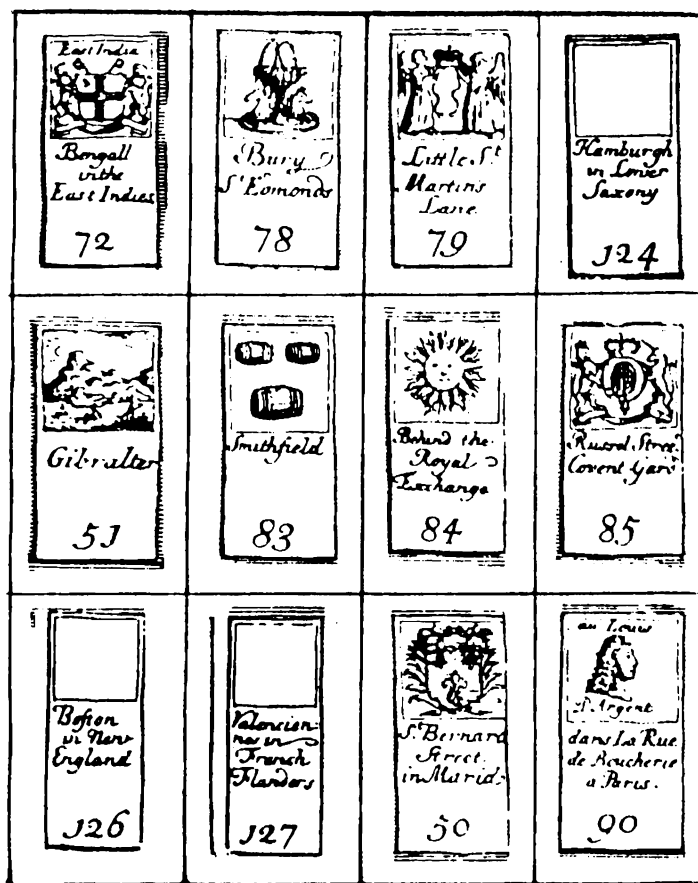 East India
Bengall
in the
East Indies
72
Bury
St Edmonds
78
Little St
Martins
Lane
79
Hamburgh
in Lower
Saxony
124
Gibralter
51
Smithfield
83
Behind the
Royal
Exchange
84
Russel Street
Covent Gard
85
Boston
in New
England
126
Valencien
nes in
French
Flanders
127
St Bernard
Street
in Madrid
50
au Louis
d'Argent
dans La Rue
de Boucherie
a Paris.
90